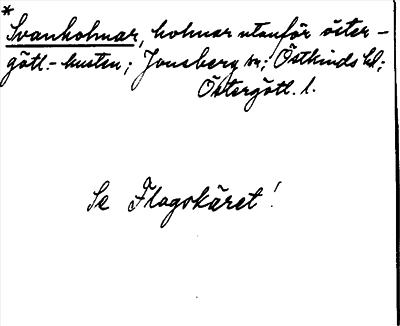 *
Svanholmar, holmar utanför öster-
götl.-kusten; Jonsberg sn; Östkinds hd;
Östergötl. l.
Se Flagskäret!